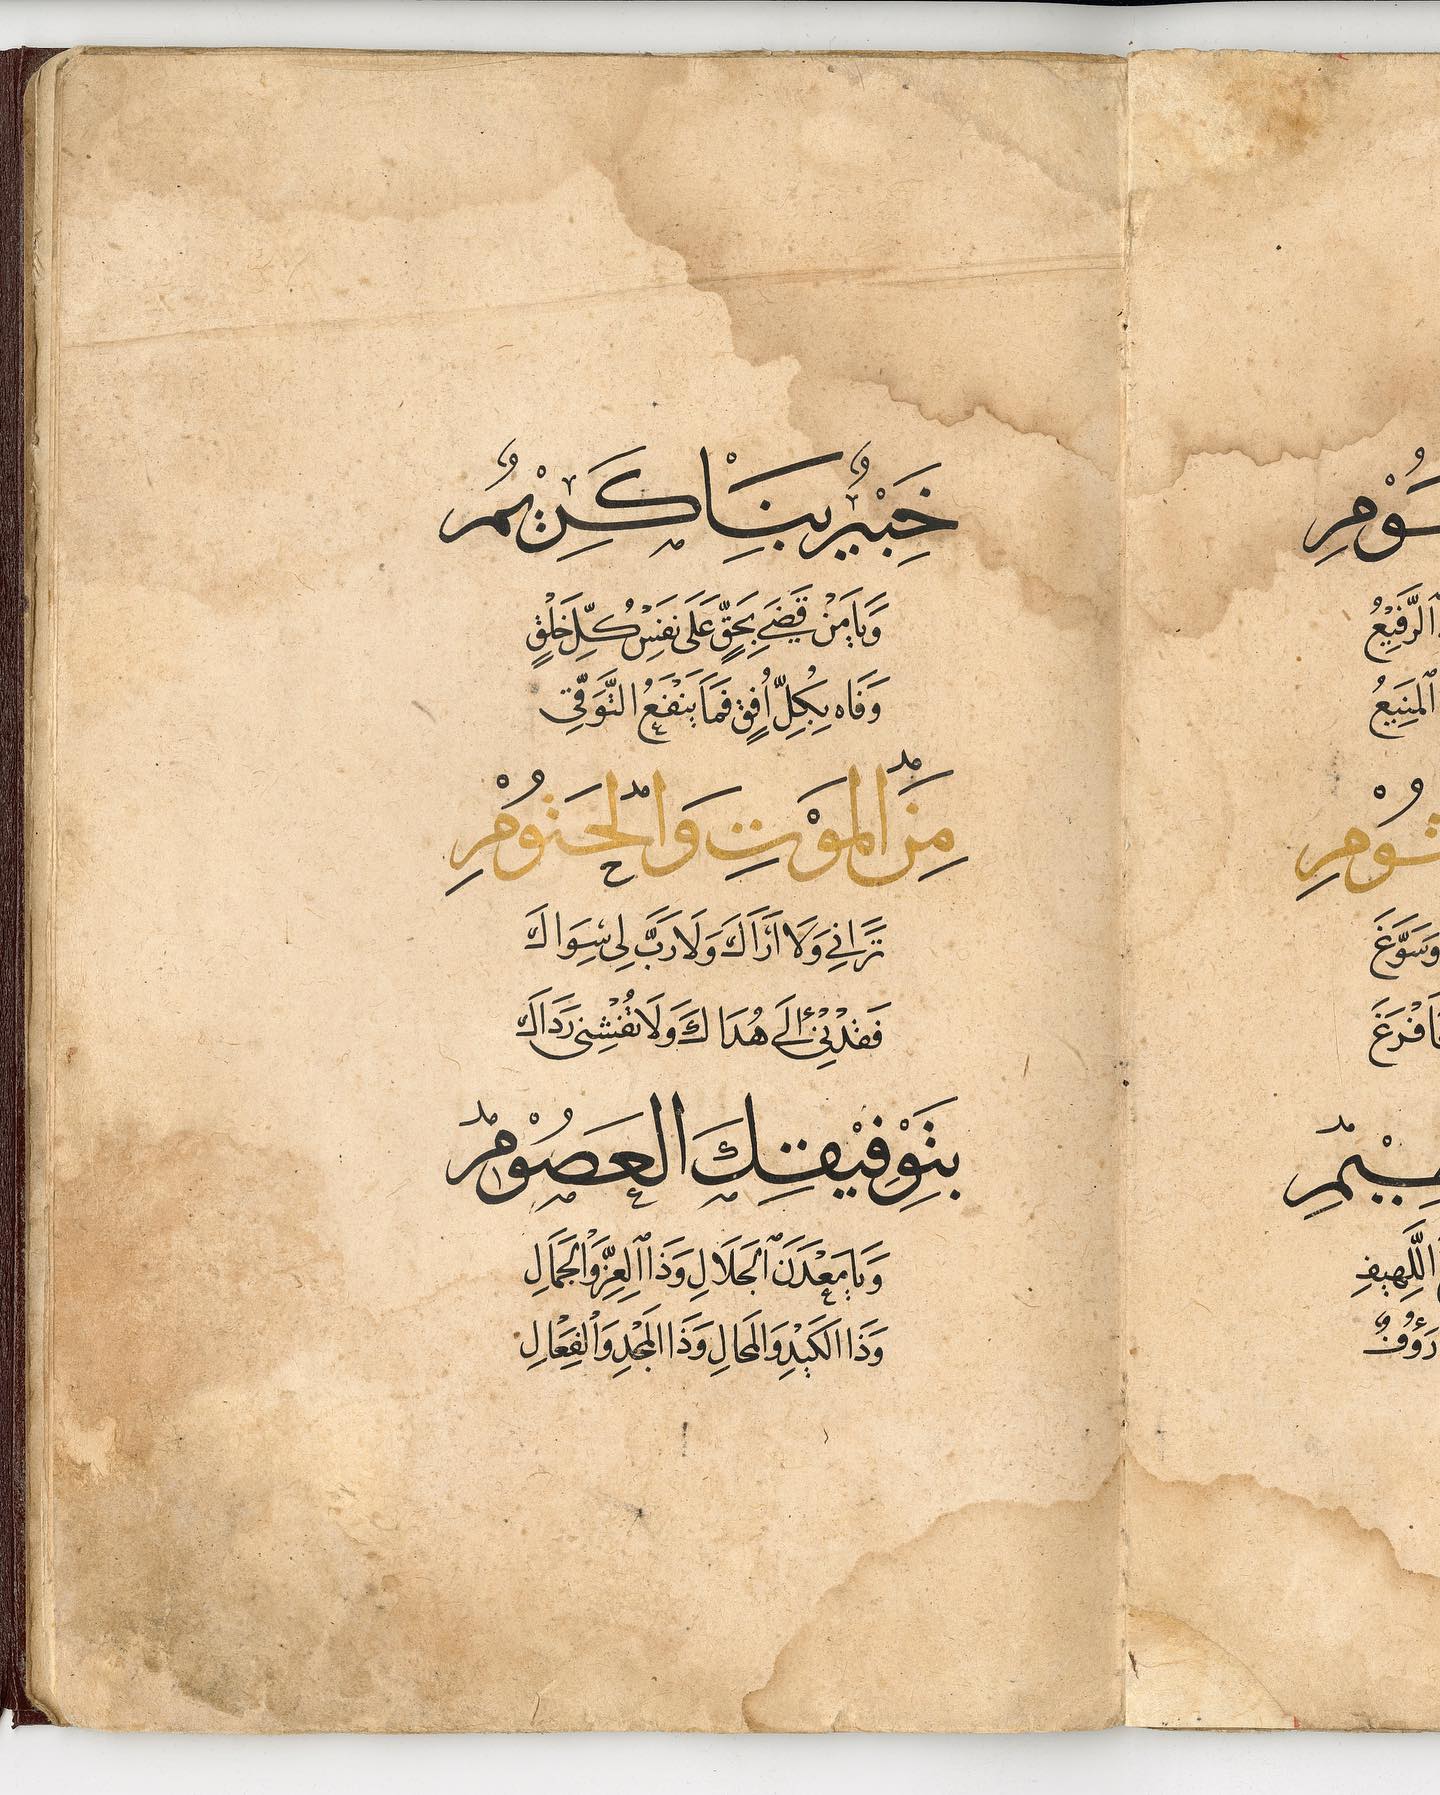 خَبِيْرٌ بِنَا كَرِيْمٌ
وَيَا مَنْ قَضَى بِحَقٍّ عَلَى نَفْسِ كُلِّ خَلْقٍ
وَفَاه بِكُلِّ أُفِقٍ فَمَا يَنْفَعُ التَّوَقِّي
مِنَ الْمَوْتِ وَالْحُتُوْمِ
تَرَانِي وَلَا أَرَاكَ وَلَا رَبَّ لِي سِوَاكَ
فَقُدْنِيْ إِلَى هُدَاكَ وَلَا تُغْشِنِي رَدَاكَ
بِتَوْفِيْقِكَ الْعَصُوْمِ
وَيَا مَعْدَنَ الْجَلَالِ وَذَا الْعِزِّ وَالْجَمَالِ
وَذَا الْكَيْدِ وَالْمِحَالِ وَذَا الْمَجْدِ وَالْفِعَالِ
الرَّفِيْعُ
الْمَنِيْعُ
وَسَوَّغَ
اللَّهِيفِ
رَؤُوْفٌ